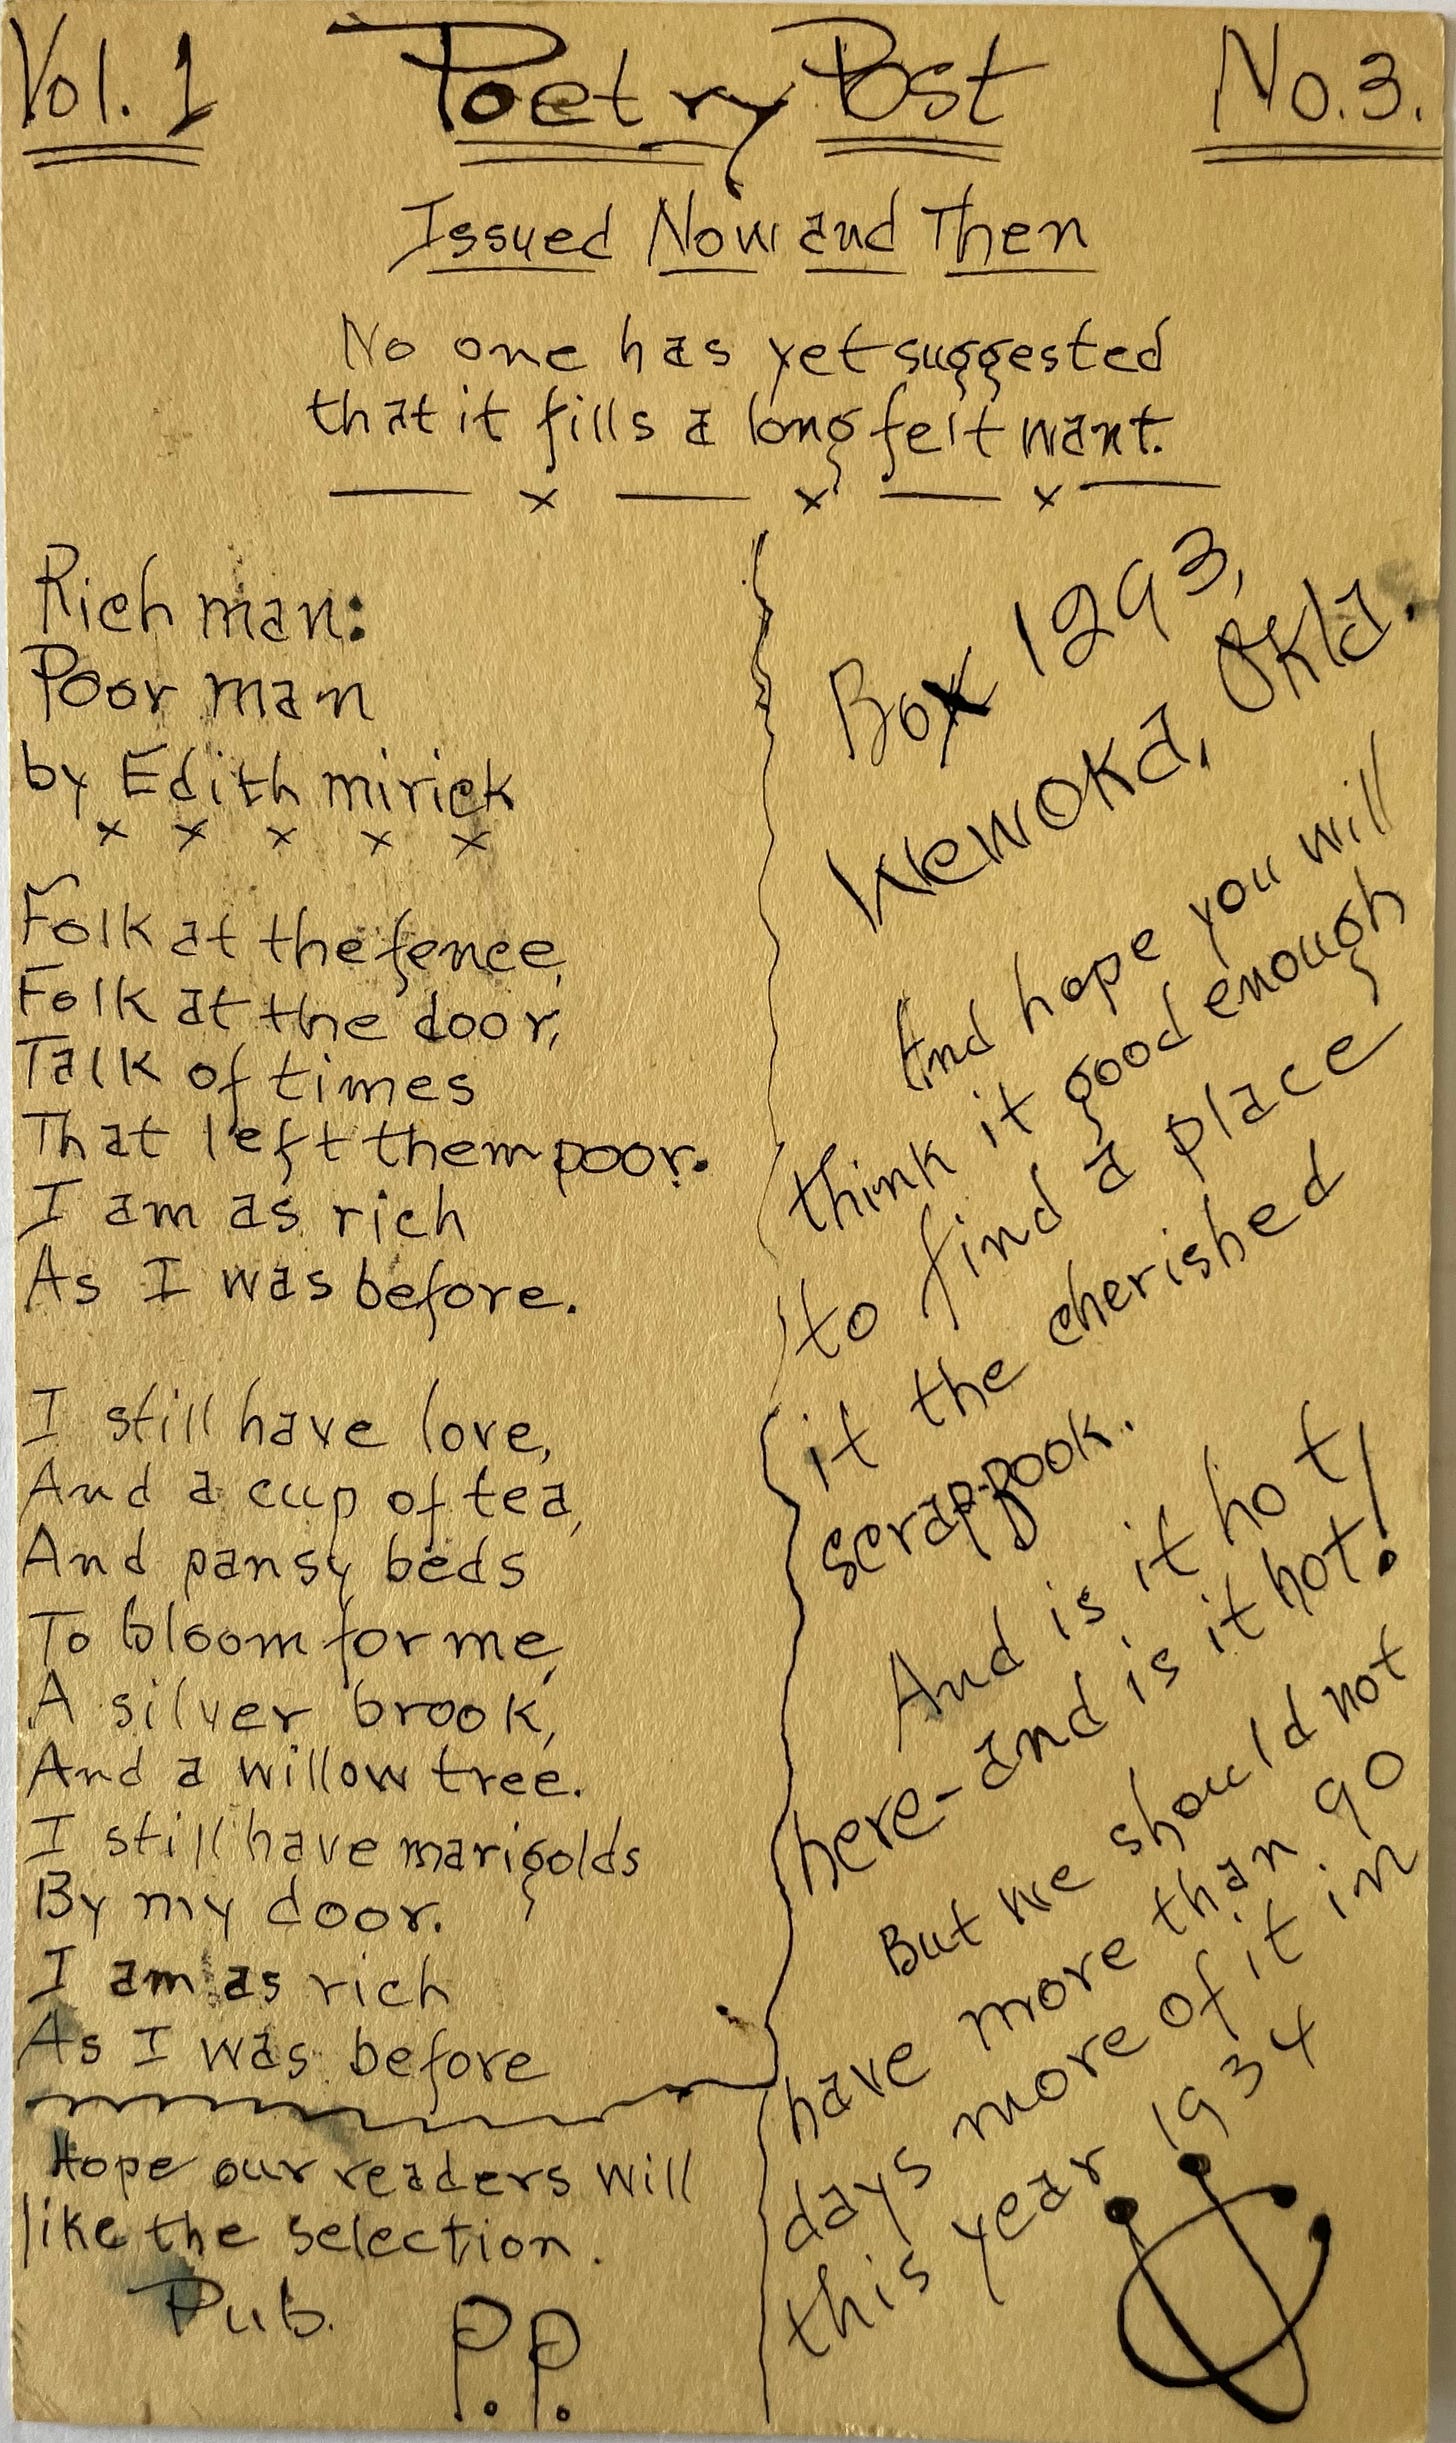 Vol. 1 Poetry Post No. 3.
Issued Now and Then
No one has yet suggested
that it fills a long felt want.
Rich man:
Poor man
by Edith mirick
x x x x x
Folk at the fence,
Folk at the door,
Talk of times
That left them poor.
I am as rich
As I was before.
I still have love,
And a cup of tea,
And pansy beds
To bloom for me,
A silver brook,
And a willow tree.
I still have marigolds
By my door.
I am as rich
As I was before
Hope our readers will
like the selection.
Pub. P.P.
Box 1293,
Wewoka, Okla.
And hope you will
think it good enough
to find a place
it the cherished
scrap-book.
And is it hot
here-and is it hot!
But we should not
have more than 90
days more of it in
this year 1934